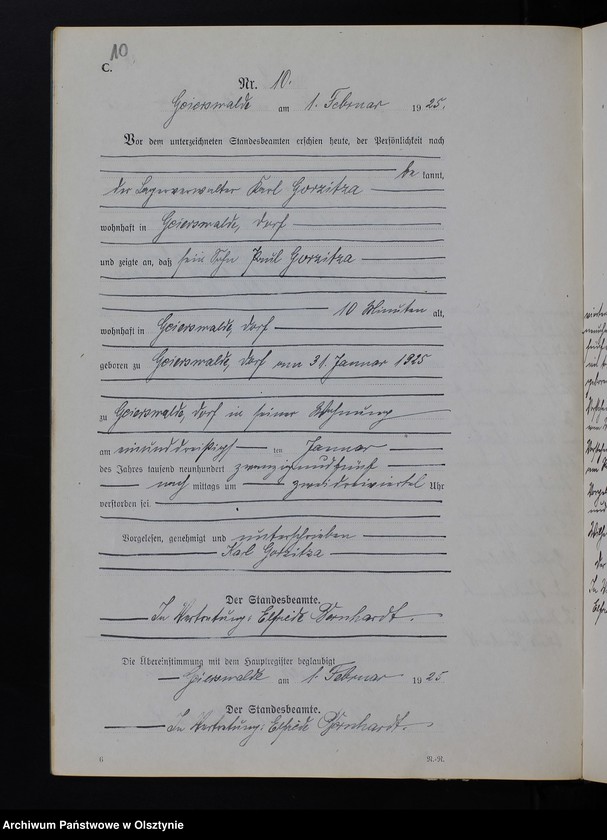 10
C.
Nr. 10.
Geierswalde am 1. Februar 1925.
Vor dem unterzeichneten Standesbeamten erschien heute, der Persönlichkeit nach
be kannt,
der Lagerverwalter Karl Gorzitza
wohnhaft in Geierswalde, Dorf
und zeigte an, daß sein Sohn Paul Gorzitza
10 Minuten alt,
wohnhaft in Geierswalde, Dorf
geboren zu Geierswalde, Dorf am 31. Januar 1925
zu Geierswalde, Dorf in seiner Wohnung
am einunddreißigst ten Januar
des Jahres tausend neunhundert zwanzigundfünf
nach mittags um zweidreiviertel Uhr
verstorben sei.
Vorgelesen, genehmigt und unterschrieben
Karl Gorzitza
Der Standesbeamte.
In Vertretung: Elfriede
Die Übereinstimmung mit dem Hauptregister beglaubigt
Geierswalde am 1. Februar 1925
Der Standesbeamte.
In Vertretung: Elfriede
6 N.-R.
Archiwum Państwowe w Olsztynie